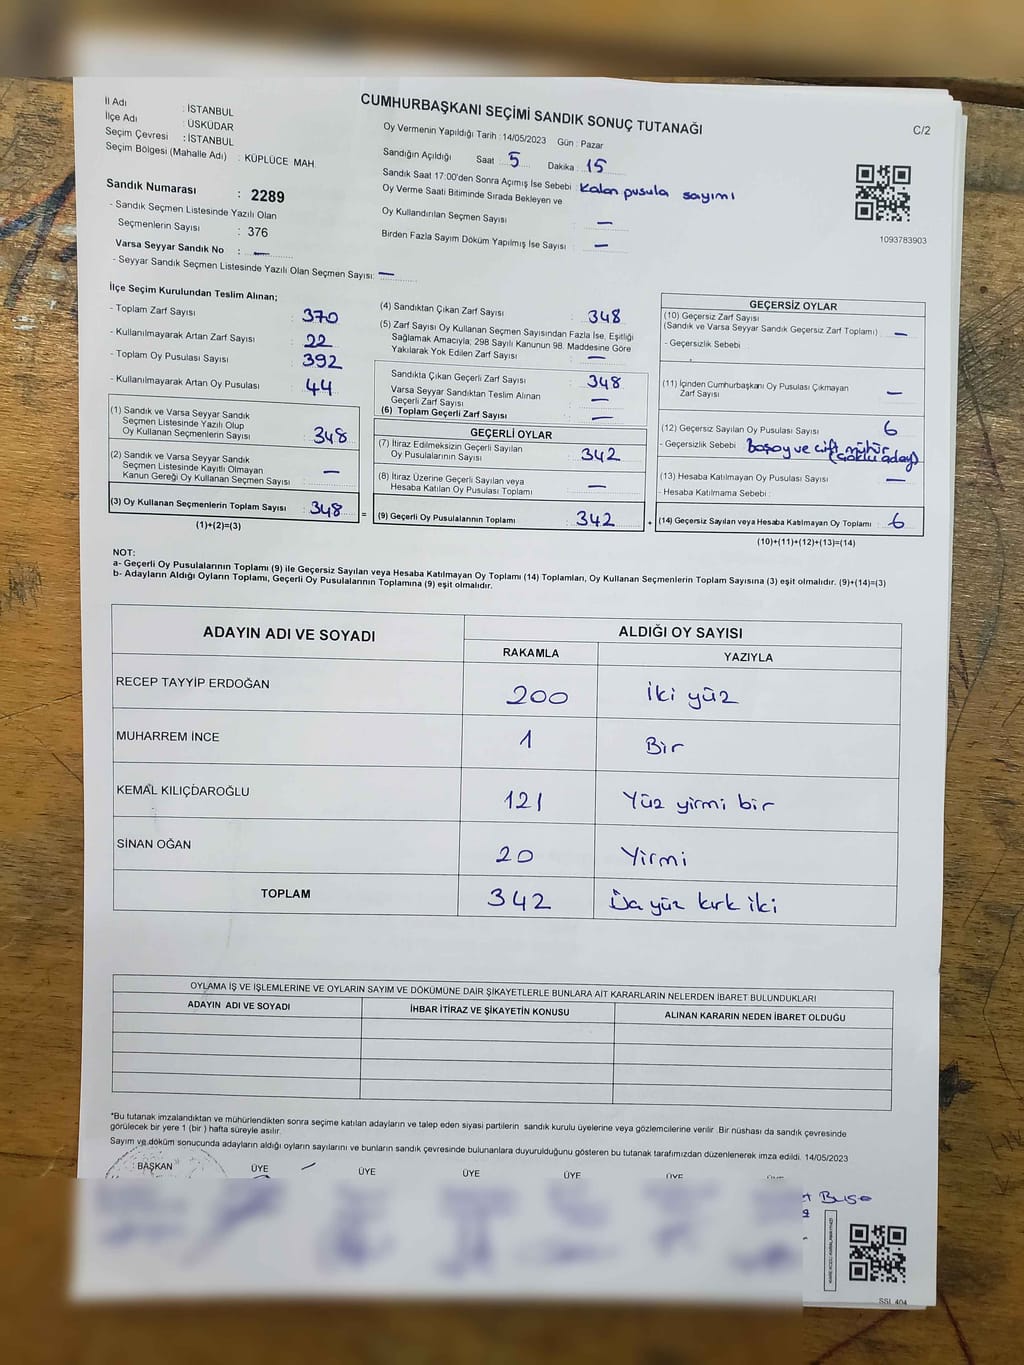 CUMHURBAŞKANI SEÇİMİ SANDIK SONUÇ TUTANAĞI
C/2
İl Adı : İSTANBUL
İlçe Adı : ÜSKÜDAR
Seçim Çevresi : İSTANBUL
Seçim Bölgesi (Mahalle Adı) : KÜPLÜCE MAH.
Sandık Numarası : 2289
- Sandık Seçmen Listesinde Yazılı Olan
Seçmenlerin Sayısı : 376
Varsa Seyyar Sandık No : —
- Seyyar Sandık Seçmen Listesinde Yazılı Olan Seçmen Sayısı: —
Oy Vermenin Yapıldığı Tarih : 14/05/2023 Gün : Pazar
Sandığın Açıldığı Saat 5 Dakika 15
Sandık Saat 17:00'den Sonra Açımış İse Sebebi Kalan pusula sayımı
Oy Verme Saati Bitiminde Sırada Bekleyen ve
Oy Kullandırılan Seçmen Sayısı —
Birden Fazla Sayım Döküm Yapılmış İse Sayısı : —
1093783903
İlçe Seçim Kurulundan Teslim Alınan;
- Toplam Zarf Sayısı : 370
- Kullanılmayarak Artan Zarf Sayısı : 22
- Toplam Oy Pusulası Sayısı : 392
- Kullanılmayarak Artan Oy Pusulası : 44
(1) Sandık ve Varsa Seyyar Sandık
Seçmen Listesinde Yazılı Olup
Oy Kullanan Seçmenlerin Sayısı : 348
(2) Sandık ve Varsa Seyyar Sandık
Seçmen Listesinde Kayıtlı Olmayan
Kanun Gereği Oy Kullanan Seçmen Sayısı : —
(3) Oy Kullanan Seçmenlerin Toplam Sayısı : 348
(1)+(2)=(3)
=
(4) Sandıktan Çıkan Zarf Sayısı : 348
(5) Zarf Sayısı Oy Kullanan Seçmen Sayısından Fazla İse, Eşitliği
Sağlamak Amacıyla; 298 Sayılı Kanunun 98. Maddesine Göre
Yakılarak Yok Edilen Zarf Sayısı : —
Sandıkta Çıkan Geçerli Zarf Sayısı : 348
Varsa Seyyar Sandıktan Teslim Alınan
Geçerli Zarf Sayısı : —
(6) Toplam Geçerli Zarf Sayısı : —
GEÇERLİ OYLAR
(7) İtiraz Edilmeksizin Geçerli Sayılan
Oy Pusulalarının Sayısı : 342
(8) İtiraz Üzerine Geçerli Sayılan veya
Hesaba Katılan Oy Pusulası Toplamı : —
(9) Geçerli Oy Pusulalarının Toplamı : 342
+
GEÇERSİZ OYLAR
(10) Geçersiz Zarf Sayısı
(Sandık ve Varsa Seyyar Sandık Geçersiz Zarf Toplamı) : —
- Geçersizlik Sebebi
(11) İçinden Cumhurbaşkanı Oy Pusulası Çıkmayan
Zarf Sayısı : —
(12) Geçersiz Sayılan Oy Pusulası Sayısı : 6
- Geçersizlik Sebebi : Boş oy ve çift mühür
(çoklu aday)
(13) Hesaba Katılmayan Oy Pusulası Sayısı : —
- Hesaba Katılmama Sebebi :
(14) Geçersiz Sayılan veya Hesaba Katılmayan Oy Toplamı : 6
(10)+(11)+(12)+(13)=(14)
NOT:
a- Geçerli Oy Pusulalarının Toplamı (9) ile Geçersiz Sayılan veya Hesaba Katılmayan Oy Toplamı (14) Toplamları, Oy Kullanan Seçmenlerin Toplam Sayısına (3) eşit olmalıdır. (9)+(14)=(3)
b- Adayların Aldığı Oyların Toplamı, Geçerli Oy Pusulalarının Toplamına (9) eşit olmalıdır.
ADAYIN ADI VE SOYADI ALDIĞI OY SAYISI
RAKAMLA YAZIYLA
RECEP TAYYİP ERDOĞAN 200 İki yüz
MUHARREM İNCE 1 Bir
KEMAL KILIÇDAROĞLU 121 Yüz yirmi bir
SİNAN OĞAN 20 Yirmi
TOPLAM 342 yüz kırk iki
OYLAMA İŞ VE İŞLEMLERİNE VE OYLARIN SAYIM VE DÖKÜMÜNE DAİR ŞİKAYETLERLE BUNLARA AİT KARARLARIN NELERDEN İBARET BULUNDUKLARI
ADAYIN ADI VE SOYADI İHBAR İTİRAZ VE ŞİKAYETİN KONUSU ALINAN KARARIN NEDEN İBARET OLDUĞU
*Bu tutanak imzalandıktan ve mühürlendikten sonra seçime katılan adayların ve talep eden siyasi partilerin sandık kurulu üyelerine veya gözlemcilerine verilir. Bir nüshası da sandık çevresinde
görülecek bir yere 1 (bir ) hafta süreyle asılır.
Sayım ve döküm sonucunda adayların aldığı oyların sayılarını ve bunların sandık çevresinde bulunanlara duyurulduğunu gösteren bu tutanak tarafımızdan düzenlenerek imza edildi. 14/05/2023
BAŞKAN ÜYE ÜYE ÜYE ÜYE ÜYE
Buse
SSL 404